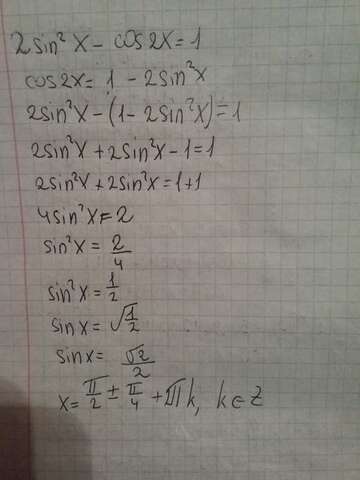 2sin²x - cos2x = 1
cos2x = 1 - 2sin²x
2sin²x - (1 - 2sin²x) = 1
2sin²x + 2sin²x - 1 = 1
2sin²x + 2sin²x = 1+1
4sin²x = 2
sin²x = 2/4
sin²x = 1/2
sinx = √1/2
sinx = √2/2
x = π/2 ± π/4 + πk, k ∈ Z